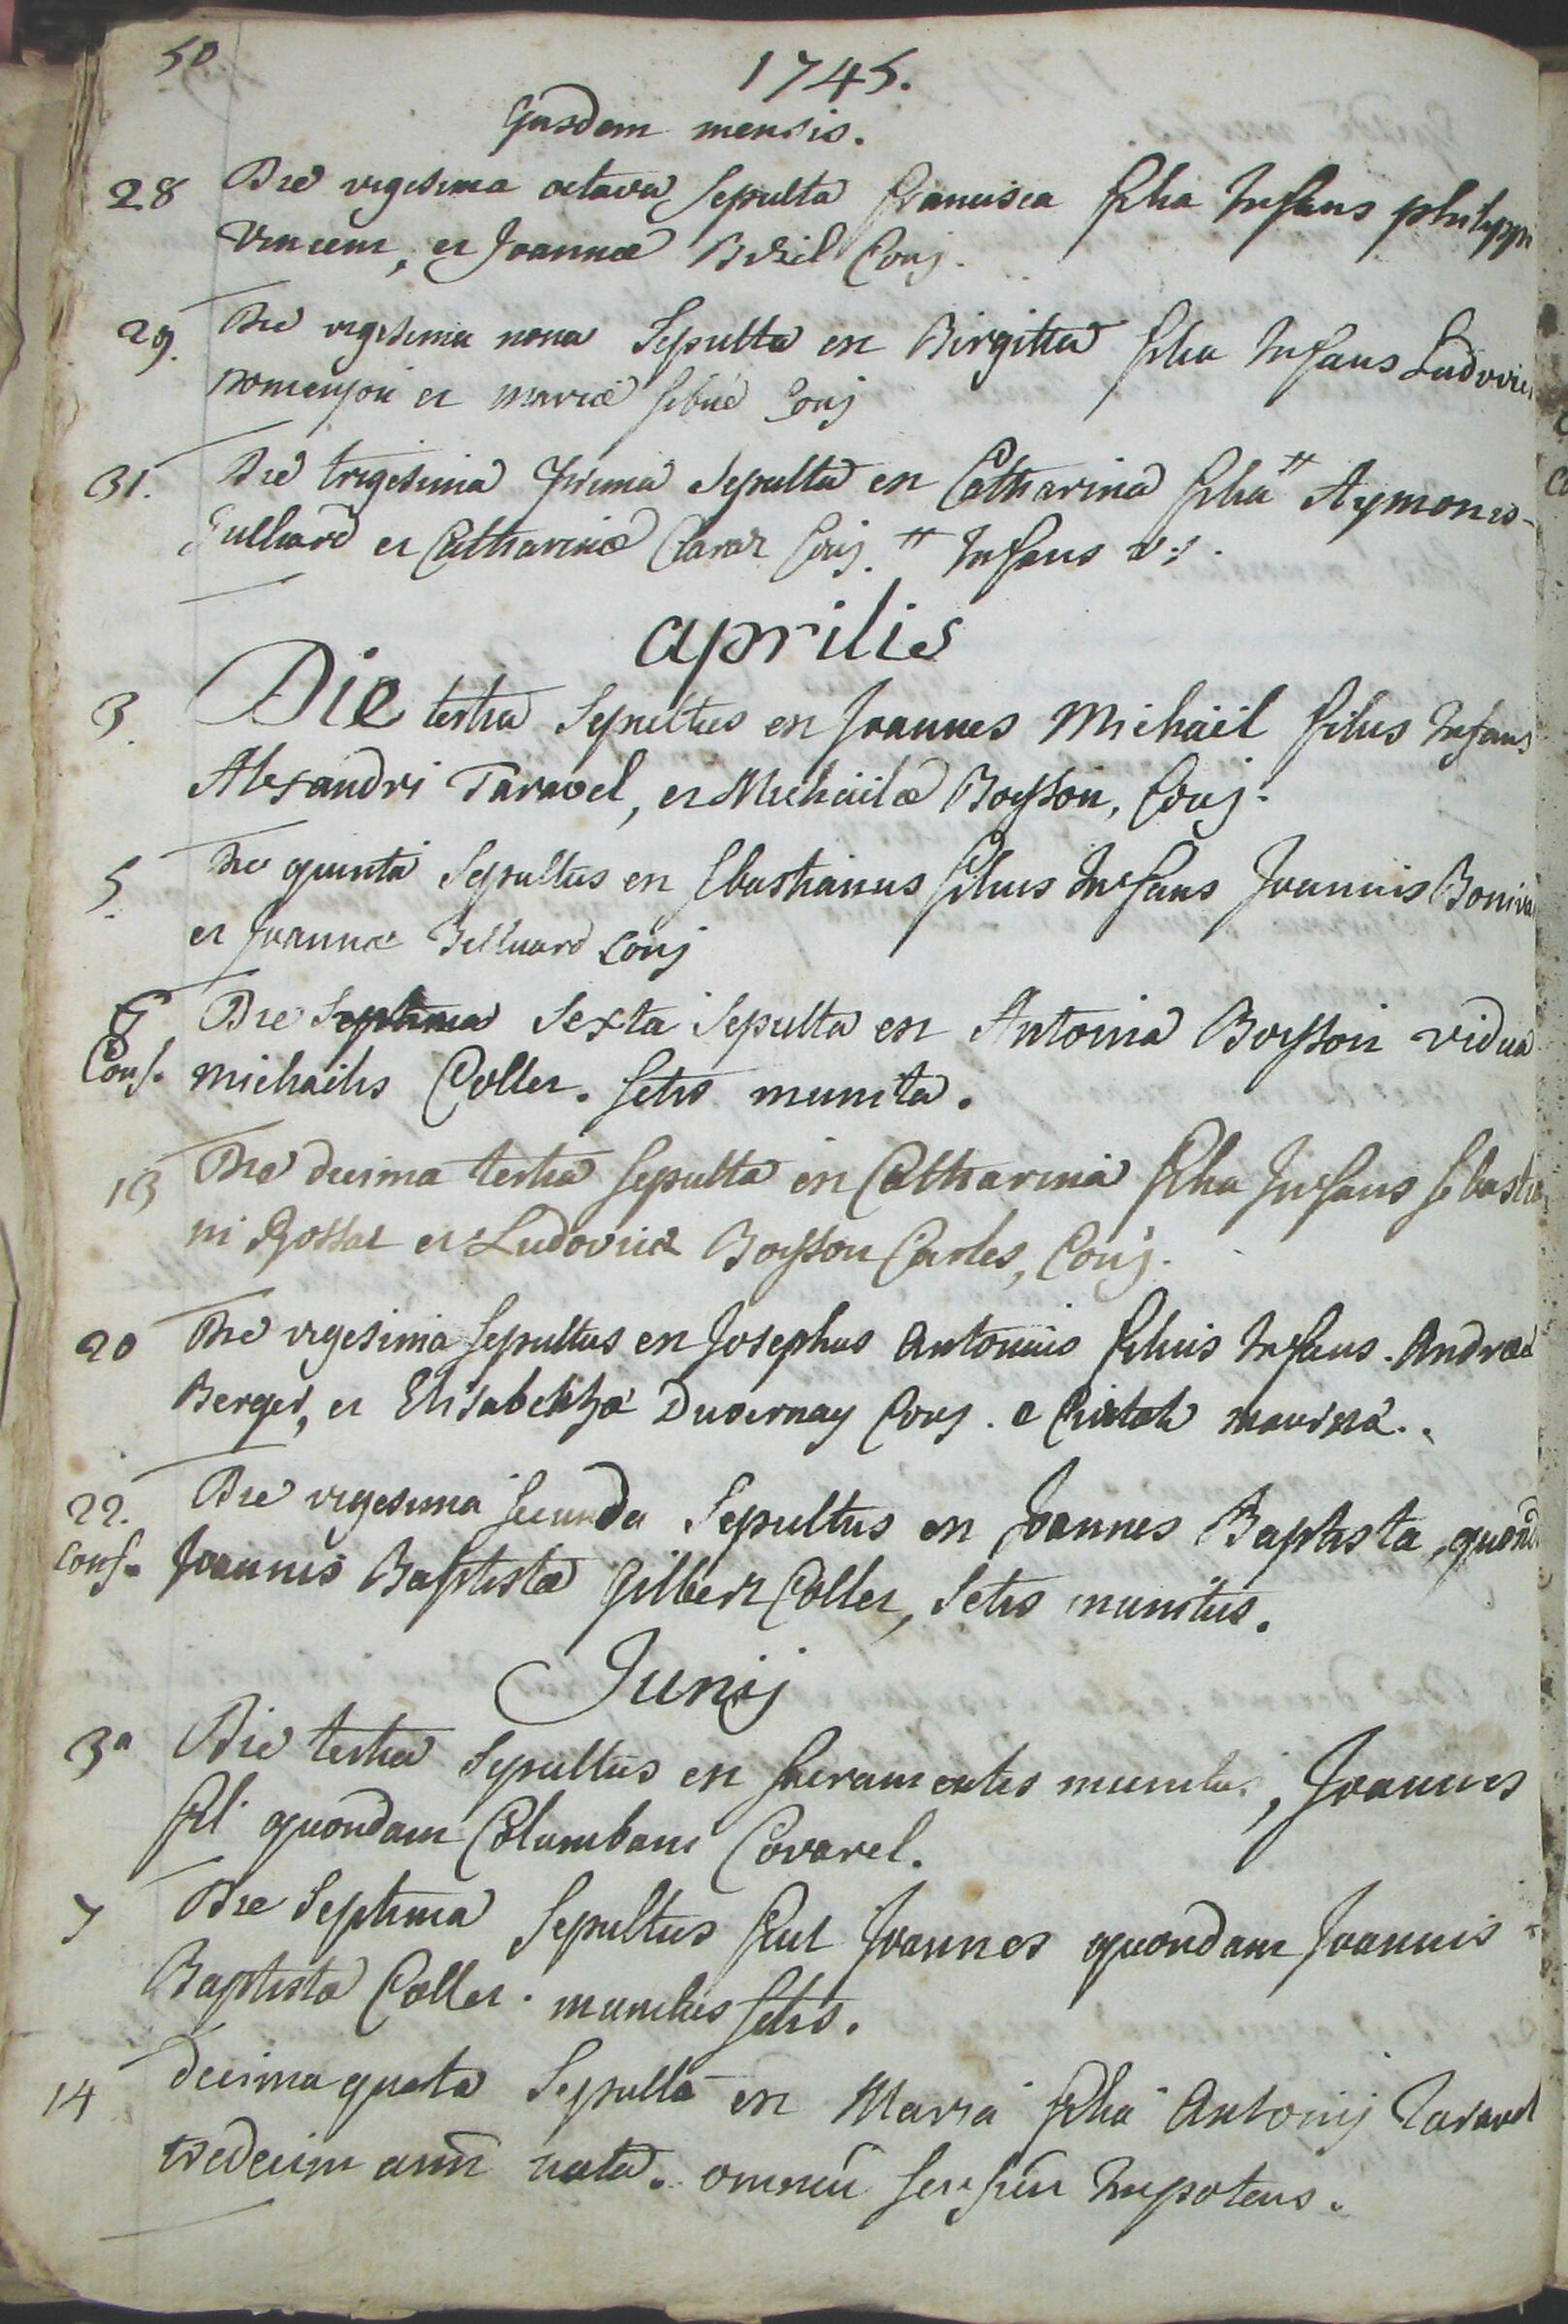 50
1745.
Ejusdem mensis.
28 Die vigesima octava Sepulta francisca filia Infans philippi
Vincent, et Joannæ Brziel Conj.
29. Die vigesima nona Sepulta est Birgitta filia Infans Ludovici
et mariæ Conj
31. Die trigesima prima Sepulta est Catharina filia # Aymonis
Gulliard et Catharinæ Claraz Conj. # Infans
aprilis
3. Die tertia Sepultus est Joannes Michäel filius Infans
Alexandri Taravel, et Michäilæ Boysson, Conj.
5. Die quinta Sepultus est Sebastianus filius Infans Joannis
et Joannæ Belluard Conj
6 Die Septima Sexta Sepulta est Antonia Boysson vidua
Conf. michaelis Collet. Sctis munita.
13 Die decima tertia Sepulta est Catharina filia Infans Sebastia
ni Gosset et Ludovicæ Boysson Carles, Conj.
20 Die vigesima Sepultus est Josephus Antonius filius Infans. Andreæ
Berger, et Elisabethæ Duvernay Conj.
22. Die vigesima Secunda Sepultus est Joannes Baptista, quond
Conf. Joannis Baptistæ Gilbert Collet, Sctis munitus.
Junij
3a Die tertia Sepultus est Sacramentis munitus, Joannes
fil. quondam Columbani Covarel.
7 Die Septima Sepultus fuit Joannes quondam Joannis
Baptista Collet. munitus Sctis.
14 decima quarta Sepulta est Maria filia Antonij Taravel
tredecim ann nata. omniū sensuū Impotens.